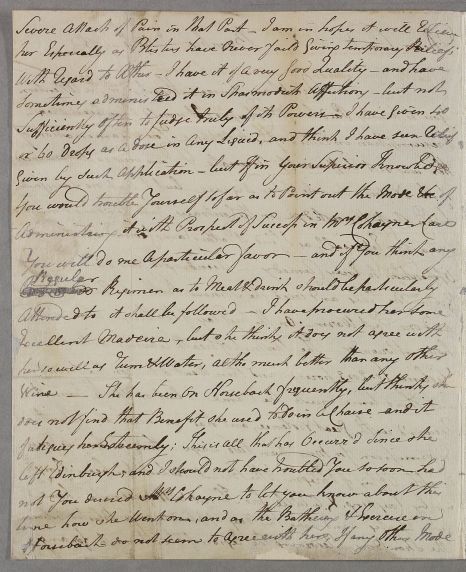 Severe Attack of Pain in that Part - I am in hopes it will relieve
her Especially as Blisters have never faild Giving temporary Relief
With regard to Æther - I have it of a very Good Quality - and have
Sometimes administred it in Spasmodick Affections - but not
Sufficiently often to Judge truly of its Powers - I have given 40
or 60 Drops as a dose in any Liquid, and think I have seen Relief
Given by such Application - but if in Your Superior Knowledge
You would trouble Yourself so far as to Point out the Mode of
Administring it with Prospect of Success in Mrs Cohayne Case
You will do me a particular favor - and if You think any
Regular Regimen as to Meat & drink should be particularly
Attended to it shall be followed - I have procured her some
Excellent Madeira, but she thinks it does not agree with
her so well as Rum & Water, altho much better than any other
Wine - She has been on Horseback frequently, but thinks she
does not find that Benefit she used to do in a Chaise and it
fatigues her Extreemly; This is all that has Occurr'd Since she
left Edinburgh and I should not have troubled You so soon had
not You desired Mrs Cohayne to let you know about this
time how she Went on, and as the Bathing & Exercise on
Horseback do not seem to Agree with her, If any other Mode